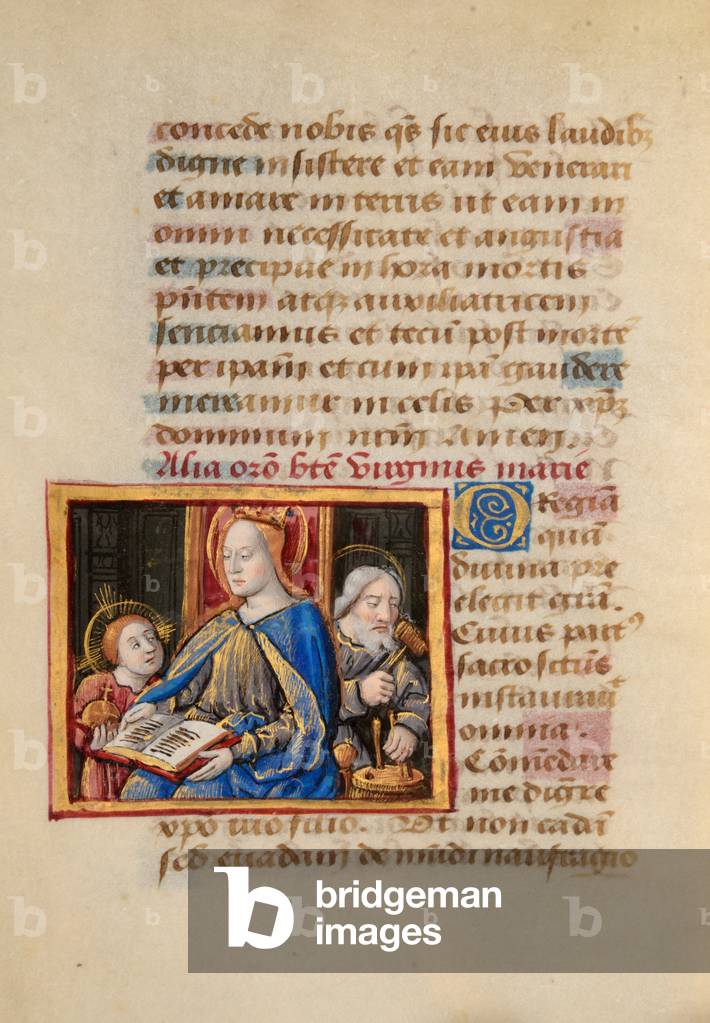 concede nobis q̃s sic eius laudibꝫ
digne insistere et eam venerari
et amare in terris ut eam in
omni necessitate et angustia
et precipue in hora mortis
pñtem atqꝫ auxiliatricem
senciamus et tecũ post mortẽ
per ipam̃ et cum ipa gaudere
mereamur in celis Per xpm̃
dominum nrm̃ Amen.
Alia orõ btẽ virginis marie
O Regia
quã
divina pre
elegit grã.
Cuius partꝰ
sacro sctũs
instauravit
omnia.
Cõmẽdare
me digre
xpo tuo filio. Ut non cadã
sed evadam de mũdi naufragio
bridgeman
images